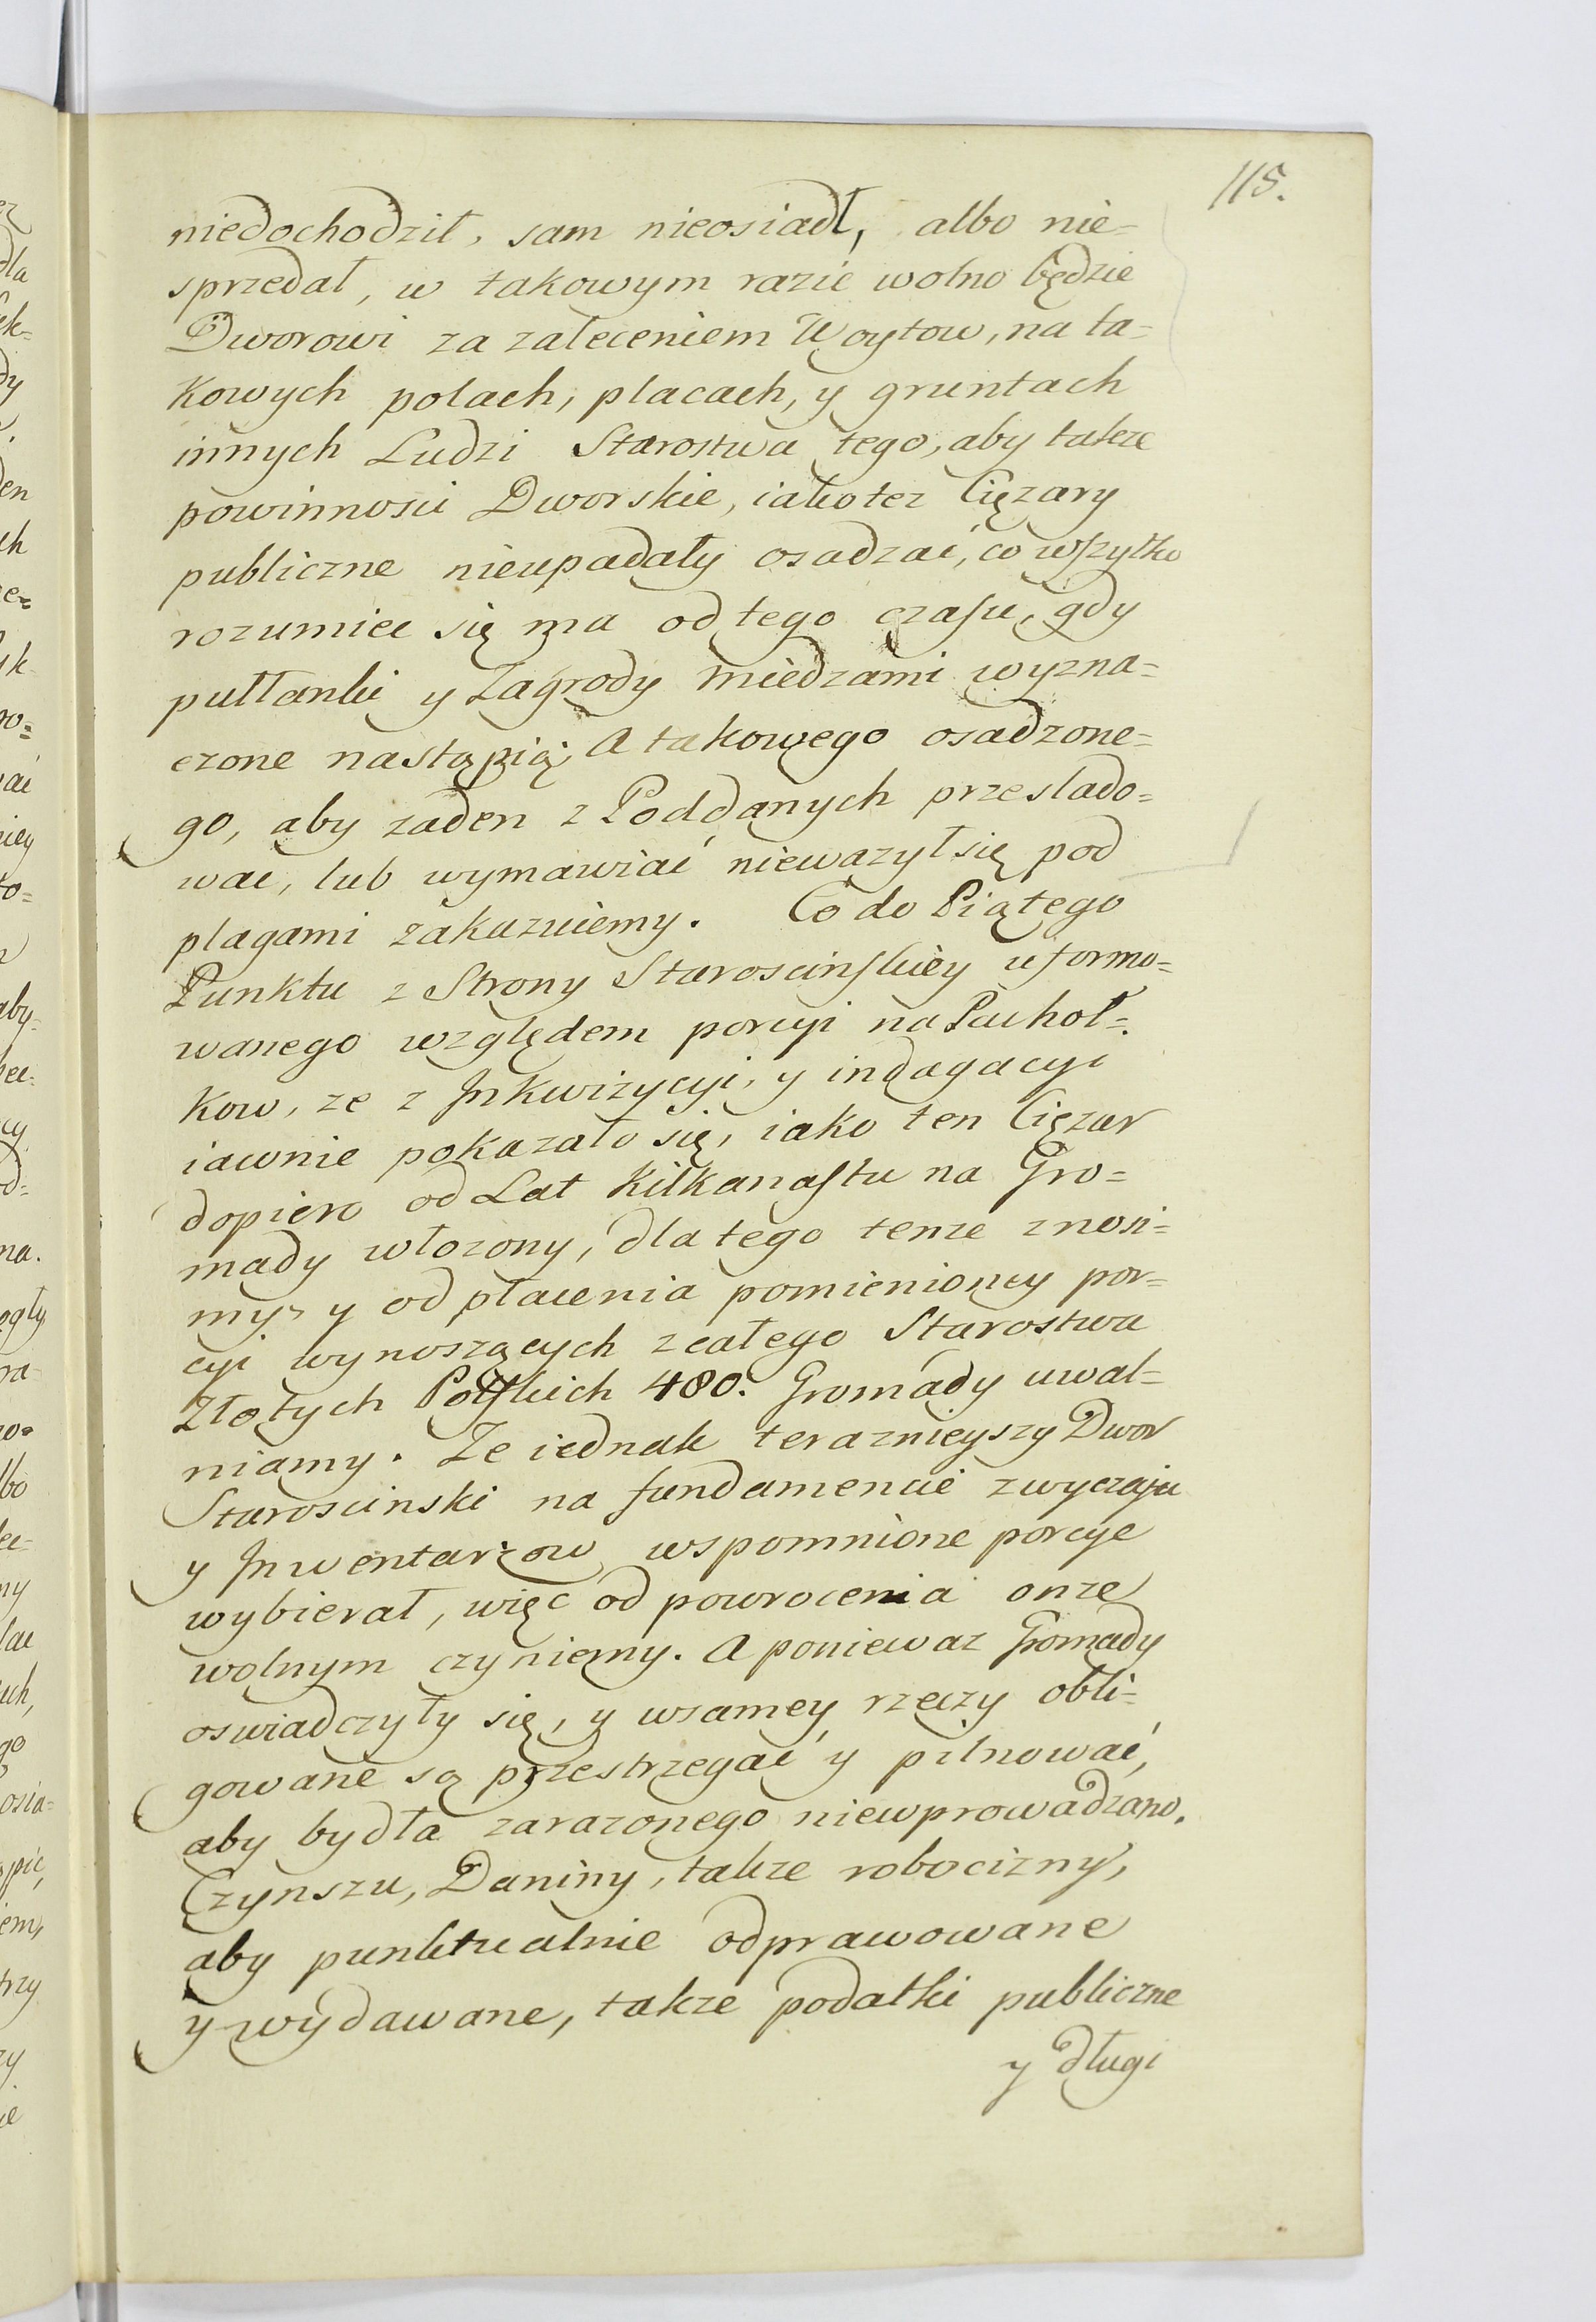 115.
niedochodził, sam nieosiadł, albo nie=
sprzedał, w takowym razie wolno będzie
Dworowi za zaleceniem Woytow, na ta=
kowych polach, placach, y gruntach
innych Ludzi Starostwa tego, aby takze
powinnosci Dworskie, iakotez Cięzary
publiczne nieupadały osadzać, co wszytko
rozumiec się ma od tego czasu, gdy
pułłanki y Zagrody miedzami wyzna=
czone nastąpią; A takowego osadzone=
go, aby zaden z Poddanych przeslado=
wac, lub wymawiać niewazył się pod
plagami zakazuiemy. Co do Piątego
Punktu z Strony Staroscinskiey uformo=
wanego względem porcyi na Pachoł=
kow, ze z Inkwizycyi, y indagacyi
iawnie pokazało się, iako ten Cięzar
dopiero od Lat kilkanastu na Gro=
mady włozony, dla tego tenze znosi=
my, y od płacenia pomienioney por=
cyi wynoszących z całego Starostwa
Złotych Polskich 480. Gromady uwal=
niamy. Ze iednak teraznieyszy Dwor
Staroscinski na fundamencie zwyczaju
y Inwentarzow wspomnione porcye
wybierał, więc od powrocenia onze
wolnym czyniemy. A poniewaz Gromady
oswiadczyły się, y wsamey rzeczy obli=
gowane są przestrzegać y pilnować,
aby bydła zarazonego niewprowadzano.
Czynszu, Daniny, takze robocizny,
aby punktualnie odprawowane
y wydawane, takze podatki publiczne
y długi